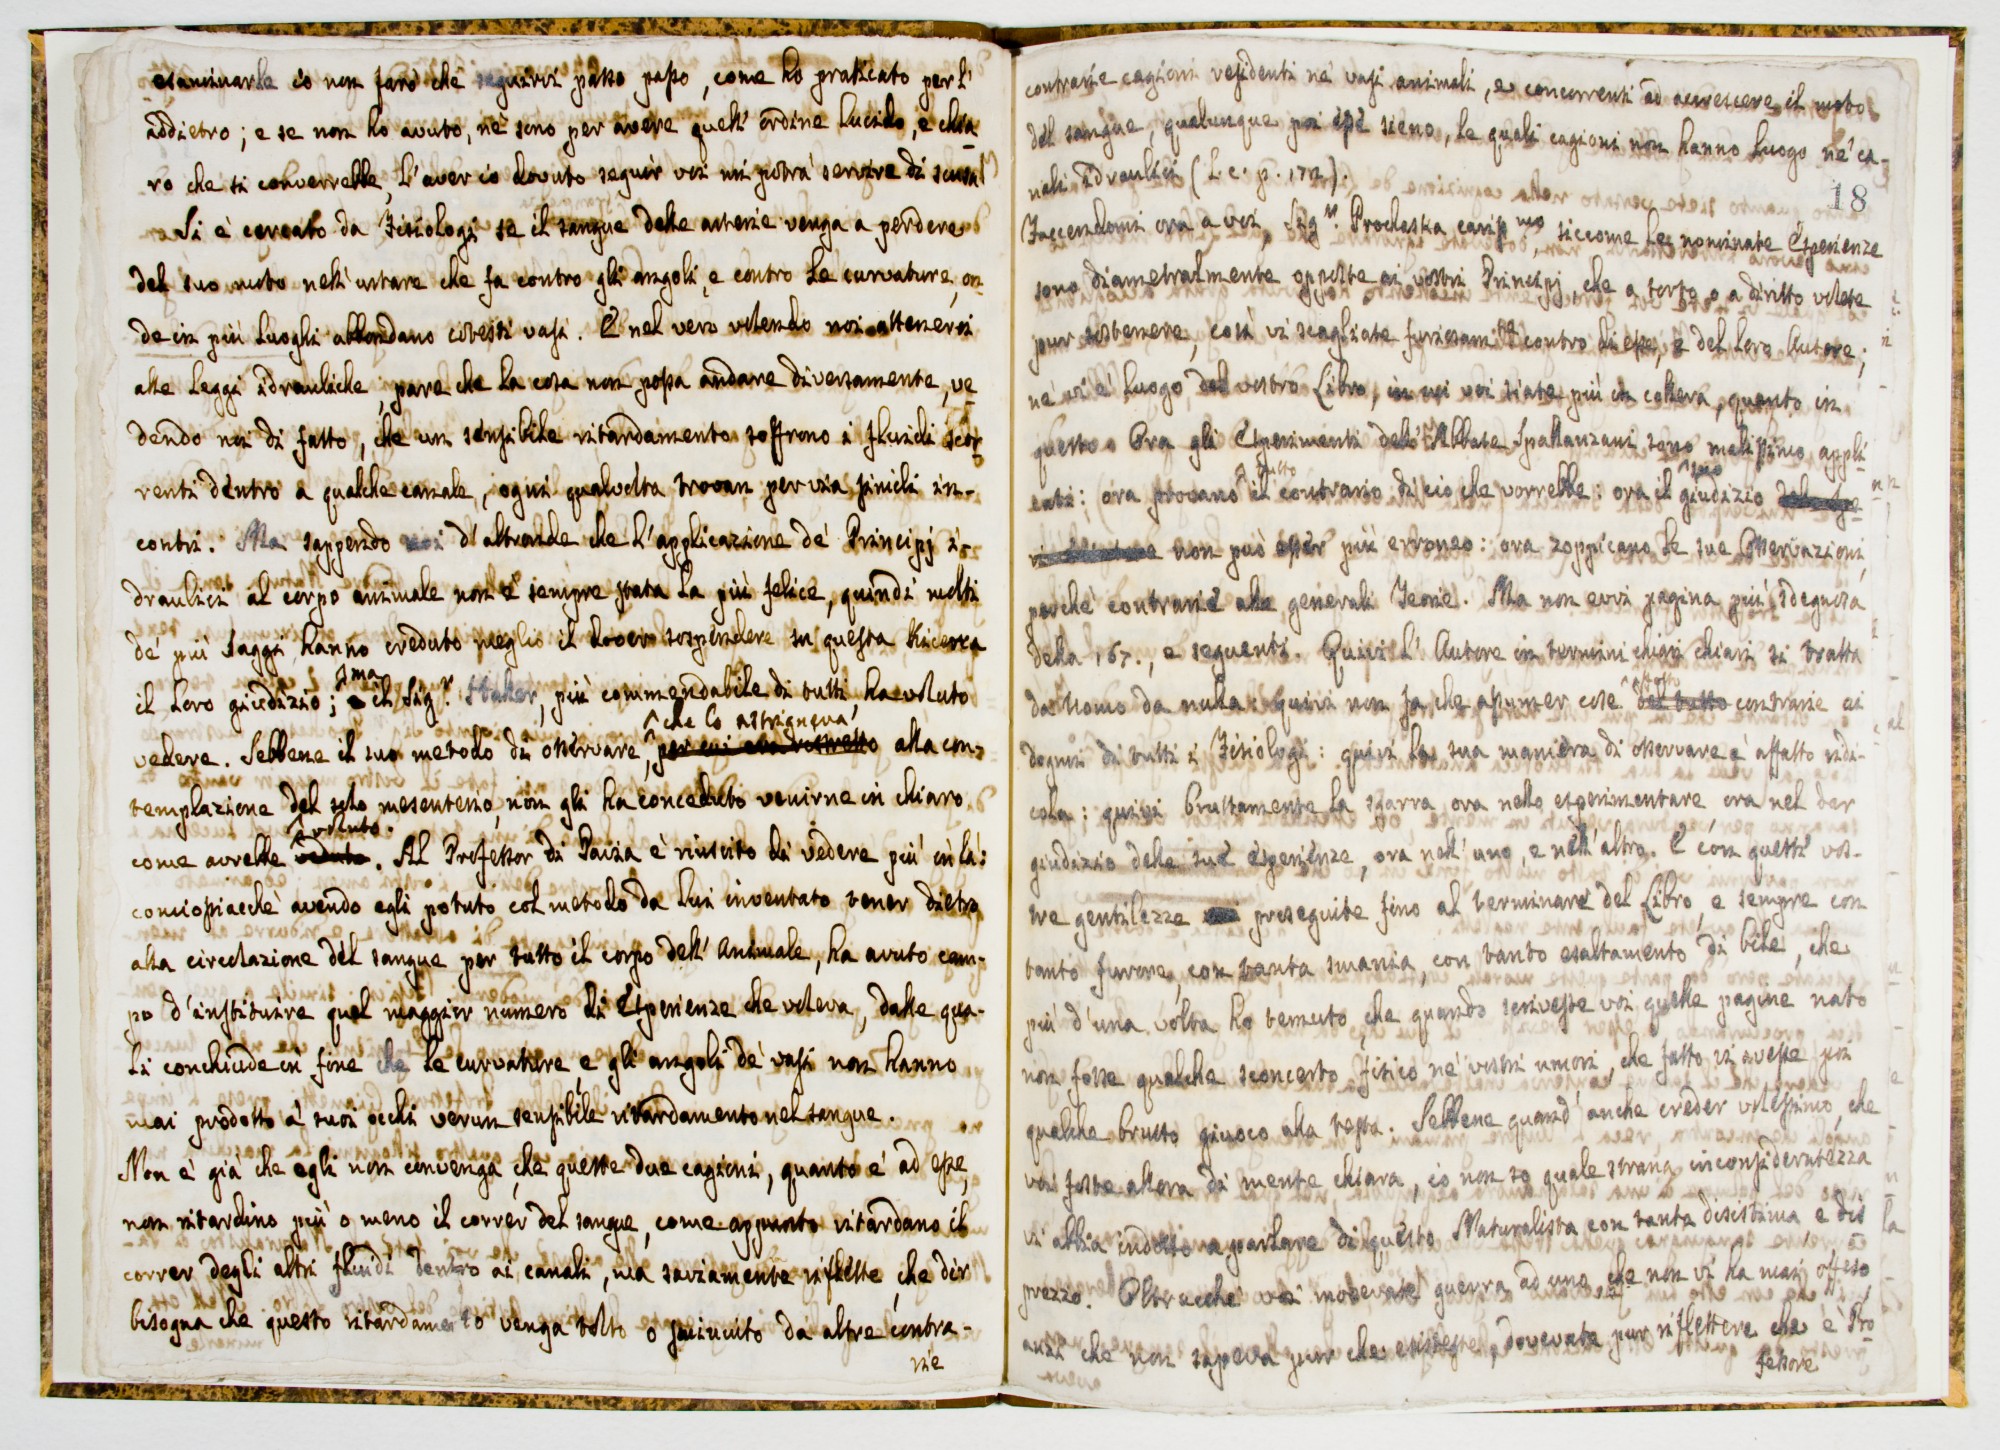 esaminarle io non farò che seguirvi passo passo, come ho praticato per l'
addietro; e se non ho avuto, nè sono per avere quell' ordine lucido, e chia
ro che si converrebbe, l'aver io dovuto seguir voi mi potrà servire di scusa
Si è cercato da Fisiologi se il sangue delle arterie venga a perdere
del suo moto nell' urtare che fa contro gli angoli, e contro le curvature, on
de in più luoghi abbondano cotesti vasi. E nel vero volendo noi attenerci
alle leggi idrauliche, pare che la cosa non possa andare diversamente, ve
dendo noi di fatto, che un sensibile ritardamento soffrono i fluidi scor
renti dentro a qualche canale, ogni qualvolta trovan per via simili in-
contri. Ma sappendo noi d'altronde che l'applicazione de' Principj i-
draulici al corpo animale non è sempre stata la più felice, quindi molti
de' più saggi hanno creduto meglio il dover sospendere su questa Ricerca
il loro giudizio; ma il Sig.r Haller, più commendabile di tutti, ha voluto
vedere. Sebbene il suo metodo di osservare, che lo astrigneva per cui era ristretto alla con-
templazione del solo mesenterio, non gli ha conceduto venirne in chiaro
come avrebbe voluto. veduto. Al Professor di Pavia è riuscito di vedere più in là:
conciossiacchè avendo egli potuto col metodo da lui inventato tener dietro
alla circolazione del sangue per tutto il corpo dell' Animale, ha avuto cam-
po d'instituire quel maggior numero di Esperienze che voleva, dalle qua-
li conchiude in fine che le curvature, e gli angoli de' vasi non hanno
mai prodotto a' suoi occhi verun sensibile ritardamento nel sangue.
Non è già che egli non convenga che queste due cagioni, quanto è ad esse,
non ritardino più o meno il correr del sangue, come appunto ritardano il
correr degli altri fluidi dentro ai canali, ma saviamente riflette, che dir
bisogna che questo ritardamento venga tolto o sminuito da altre contra-
rie
contrarie cagioni residenti ne' vasi animali, e concorrenti ad accrescere il moto
del sangue, qualunque poi esse sieno, le quali cagioni non hanno luogo ne' ca-
nali idraulici (l. c. p. 172).
18
Facendomi ora a voi, Sig.r Prochaska cariss.mo, siccome le nominate Esperienze
sono diametralmente opposte ai vostri Principj, che a torto o a diritto volete
pur sostenere, così vi scagliate furiosam.te contro di esse, e del loro Autore;
nè vi è luogo del vostro Libro, in cui voi siate più in collera, quanto in
questo. Ora gli Esperimenti dell' Abbate Spallanzani sono malissimo appli
cati: ora provano tutto il contrario di ciò che vorrebbe: ora il suo giudizio
non può esser più erroneo: ora zoppicano le sue Osservazioni,
perchè contrarie alle generali Teorie. Ma non evvi pagina più sdegnosa
della 167., e seguenti. Quivi l'Autore in termini chiari chiari si tratta
da Uomo da nulla: quivi non fa che assumer cose affatto del tutto contrarie ai
dogmi di tutti i Fisiologi: quivi la sua maniera di osservare è affatto ridi-
cola: quivi bruttamente la sgarra, ora nello esperimentare, ora nel dar
giudizio delle sue esperienze, ora nell' uno, e nell' altro. E con queste vos-
tre gentilezze proseguite fino al terminare del Libro, e sempre con
tanto furore, con tanta smania, con tanto esaltamento di bile, che
più d'una volta ho temuto, che quando scriveste voi quelle pagine nato
non fosse qualche sconcerto fisico ne' vostri umori, che fatto vi avesse poi
qualche brutto giuoco alla testa. Sebbene quand' anche creder volessimo, che
voi foste allora di mente chiara, io non so quale strana inconsideratezza
vi abbia indotto a parlare di questo Naturalista con tanta disistima, e dis
prezzo. Oltracchè voi movevate guerra ad uno che non vi ha mai offeso,
anzi che non sapeva pur che esisteste, dovevate pur riflettere che è Pro
fessore